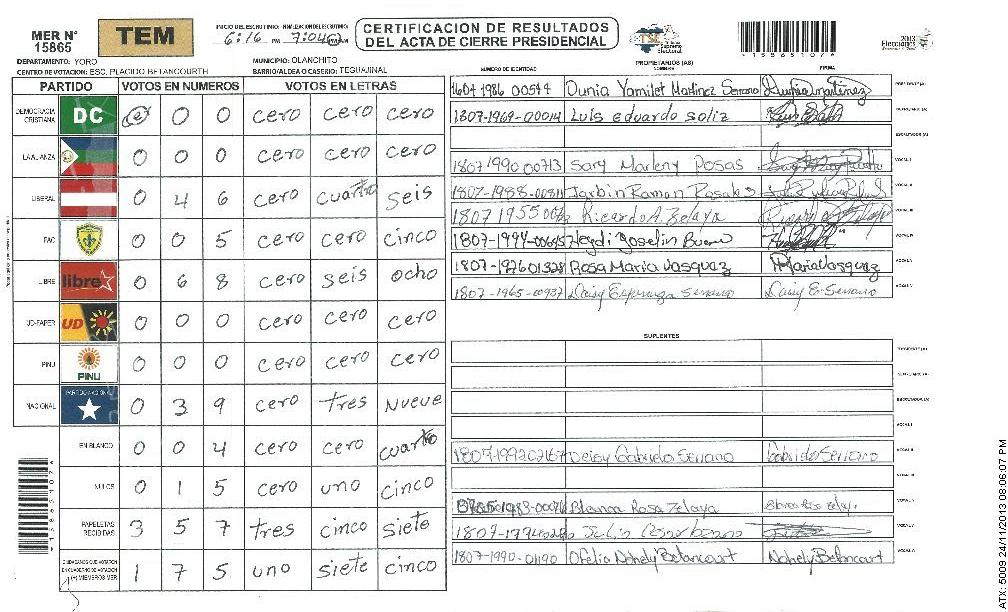 MER N° 15865
TEM
INICIO DEL ESCRUTINIO: FINALIZACION DEL ESCRUTINIO:
6:16 PM 7:04
CERTIFICACION DE RESULTADOS
DEL ACTA DE CIERRE PRESIDENCIAL
TSE
Tribunal Supremo Electoral
*15865107*
2013
Elecciones
DEPARTAMENTO: YORO
MUNICIPIO: OLANCHITO
CENTRO DE VOTACION: ESC. PLACIDO BETANCOURTH
BARRIO/ALDEA O CASERIO: TEGUAJINAL
PARTIDO VOTOS EN NUMEROS VOTOS EN LETRAS
DEMOCRACIA CRISTIANA DC 0 0 0 cero cero cero
LA ALIANZA 0 0 0 cero cero cero
LIBERAL 0 4 6 cero cuatro seis
PAC 0 0 5 cero cero cinco
LIBRE libre 0 6 8 cero seis ocho
UD-FAPER UD 0 0 0 cero cero cero
PINU PINU 0 0 0 cero cero cero
NACIONAL PARTIDO NACIONAL 0 3 9 cero tres nueve
EN BLANCO 0 0 4 cero cero cuatro
NULOS 0 1 5 cero uno cinco
PAPELETAS RECIBIDAS 3 5 7 tres cinco siete
CIUDADANOS QUE VOTARON EN CUADERNO DE VOTACION (+) MIEMBROS MER 1 7 5 uno siete cinco
PROPIETARIOS (AS)
NUMERO DE IDENTIDAD NOMBRE FIRMA
1604 1986 00544 Dunia Yamilet Martinez Serrano PRESIDENTE (A)
1807-1969-00014 Luis eduardo soliz SECRETARIO (A)
ESCRUTADOR (A)
1807 1990 00713 Sary Marleny Posas VOCAL I
1807-1988-00811 Jarbin Ramon Rosales VOCAL II
1807 1955 Ricardo A. Zelaya VOCAL III
1807-1994-00695 Heydi Joselin Bueno VOCAL IV
1807-1976 01328 Rosa Maria Vasquez Maria Vasquez VOCAL V
1807-1965-00937 Daisy Esperanza Serrano Daisy E. Serrano VOCAL VI
SUPLENTES
PRESIDENTE (A)
SECRETARIO (A)
ESCRUTADOR (A)
VOCAL I
1807-1992 02167 Deisy Gabriela Serrano Gabriela Serrano VOCAL II
VOCAL III
Blanca Rosa Zelaya VOCAL IV
Julio Cesar VOCAL V
1807-1990-01190 Ofelia Nohely Betancourt Nohely Betancourt VOCAL VI
*15865107*
ATX: 5009 24/11/2013 08:06:07 PM